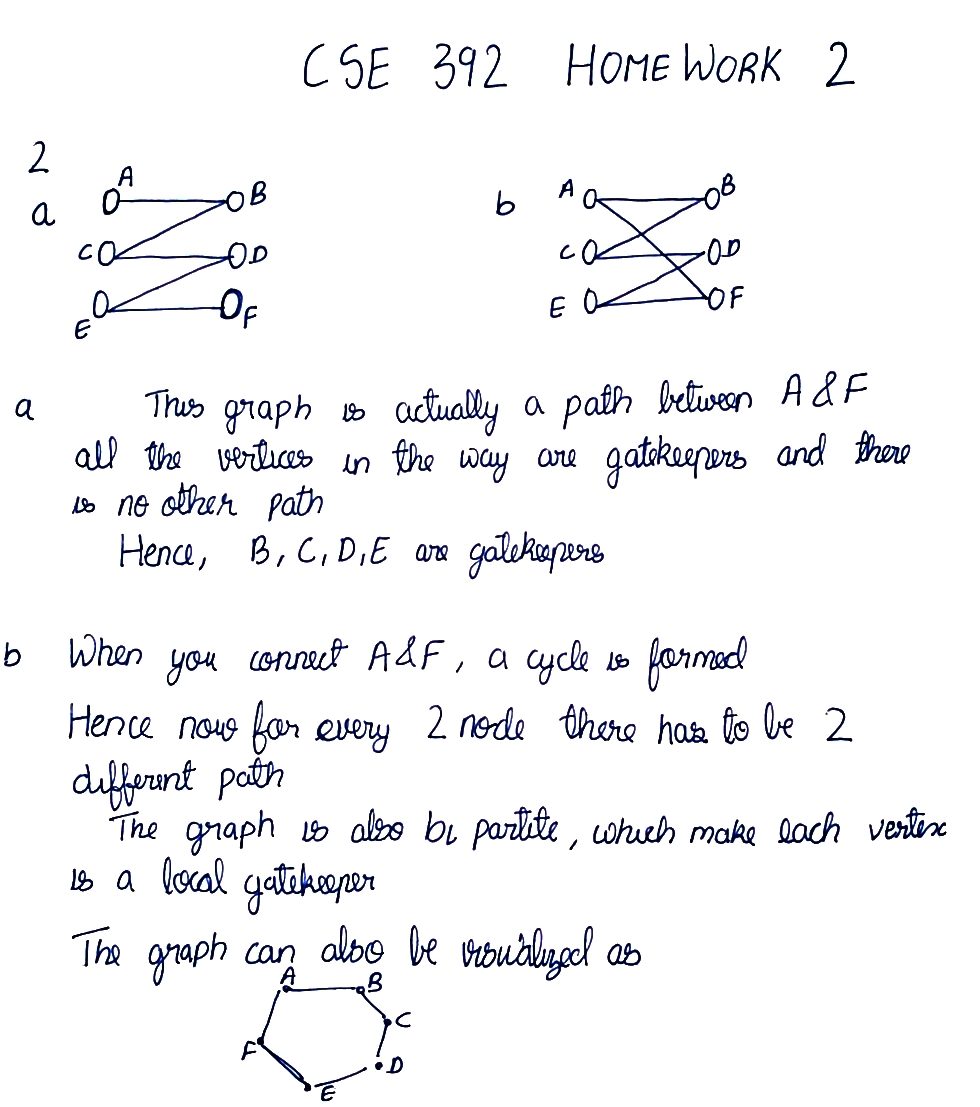 CSE 392 HOMEWORK 2
2
a
A B
C D
E F
b
A B
C D
E F
a This graph is actually a path between A & F
all the vertices in the way are gatekeepers and there
is no other path
Hence, B, C, D, E are gatekeepers
b When you connect A & F, a cycle is formed
Hence now for every 2 node there has to be 2
different path
The graph is also bi partite, which make each vertex
is a local gatekeeper
The graph can also be visualized as
A B
C
F D
E